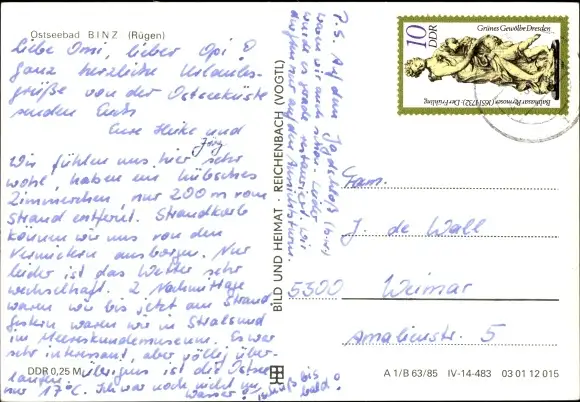 Ostseebad BINZ (Rügen)
Liebe Omi, lieber Opi!
Ganz herzliche Urlaubs-
grüße von der Ostseeküste
senden Euch
Eure Heike und
Jörg
Wir fühlen uns hier sehr
wohl, haben ein hübsches
Zimmerchen, nur 200 m vom
Strand entfernt. Strandkorb
können wir uns von den
Vermietern ausborgen. Nur
leider ist das Wetter sehr
wechselhaft. 2 Nachmittage
waren wir bis jetzt am Strand
gestern waren wir in Stralsund
im Meereskundemuseum. Es war
sehr interessant, aber völlig über-
laufen. Übrigens ist die Ostsee
nur 17°C. Ich war noch nicht im
Wasser! Tschüß bis
bald!
DDR 0,25 M
P.S. Auf dem Jagdschloß (hier)
waren wir auch schon. Leider
wurde es gerade restauriert, wir
durften nur auf den Aussichtsturm.
BILD UND HEIMAT · REICHENBACH (VOGTL)
Grünes Gewölbe Dresden
10
DDR
Balthasar Permoser (1651-1732) · Der Frühling
Fam.
J. de Wall
5300 Weimar
Amalienstr. 5
A 1/B 63/85 IV-14-483 03 01 12 015